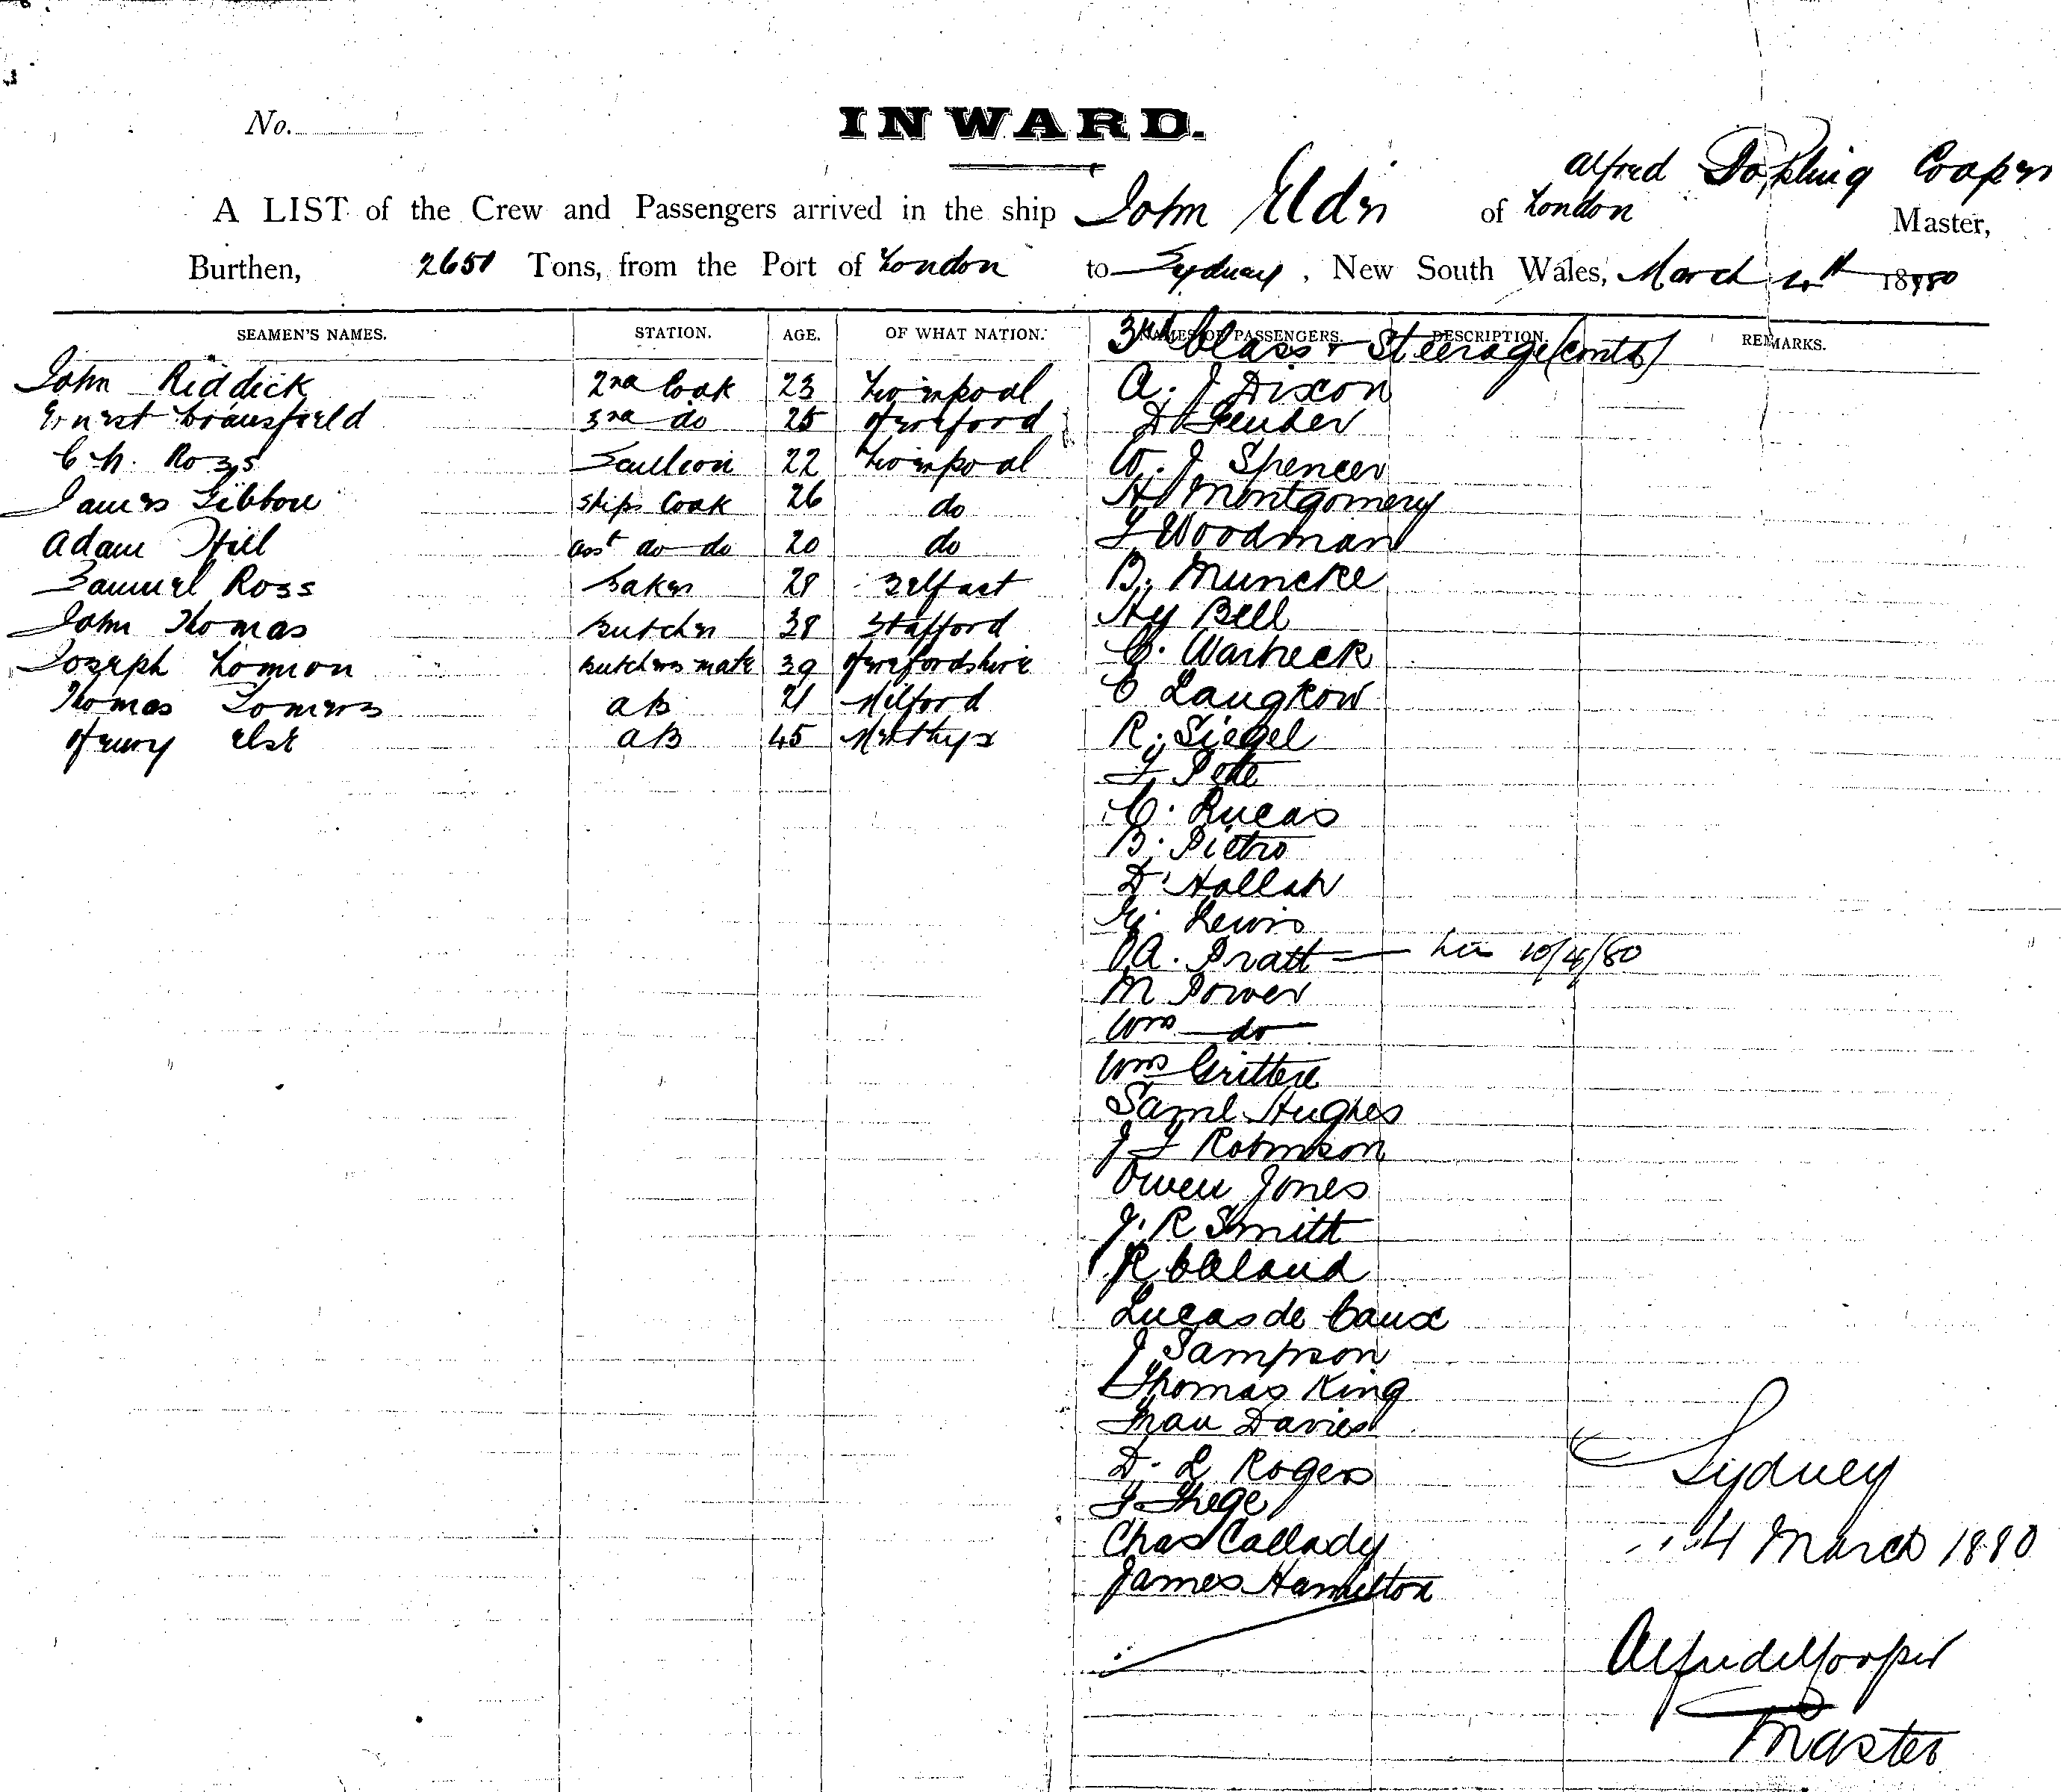 No.
INWARD.
Alfred Cooper
A LIST of the Crew and Passengers arrived in the ship John Elder of London Master,
Burthen, 2651 Tons, from the Port of London to Sydney, New South Wales, March 4th 1880
SEAMEN'S NAMES. STATION. AGE. OF WHAT NATION. NAMES OF PASSENGERS. DESCRIPTION. REMARKS.
3rd Class & Steerage (contd)
John Riddick 2nd Cook 23 Liverpool A. J Dixon
Ernest Cransfield 3rd do 25 Hereford D
C. H. Ross Scullion 22 Liverpool W. J. Spencer
James Gibbon Ships Cook 26 do H Montgomery
Adam Hill asst do do 20 do Woodman
Samuel Ross Baker 28 Belfast B. Muncke
John Thomas Butcher 38 Stafford Hy Bell
Joseph Butchers mate 39 Herefordshire C. Warbeck
Thomas AB 21 Milford C Langkow
Henry Else AB 45 Merthyr R. Siegel
Pote
C. Lucas
B. Pietro
D. Hallah
Lewis
A. Pratt 10/4/80
M Power
Wm do
Wm Gritten
Saml Hughes
J Robinson
Owen Jones
J. R Smith
R Cleland
Lucas de Caux
J Sampson
Thomas King
Davies
D. L Rogers
Chas Callady
James Hamilton
Sydney
4 March 1880
Alfred Cooper
Master